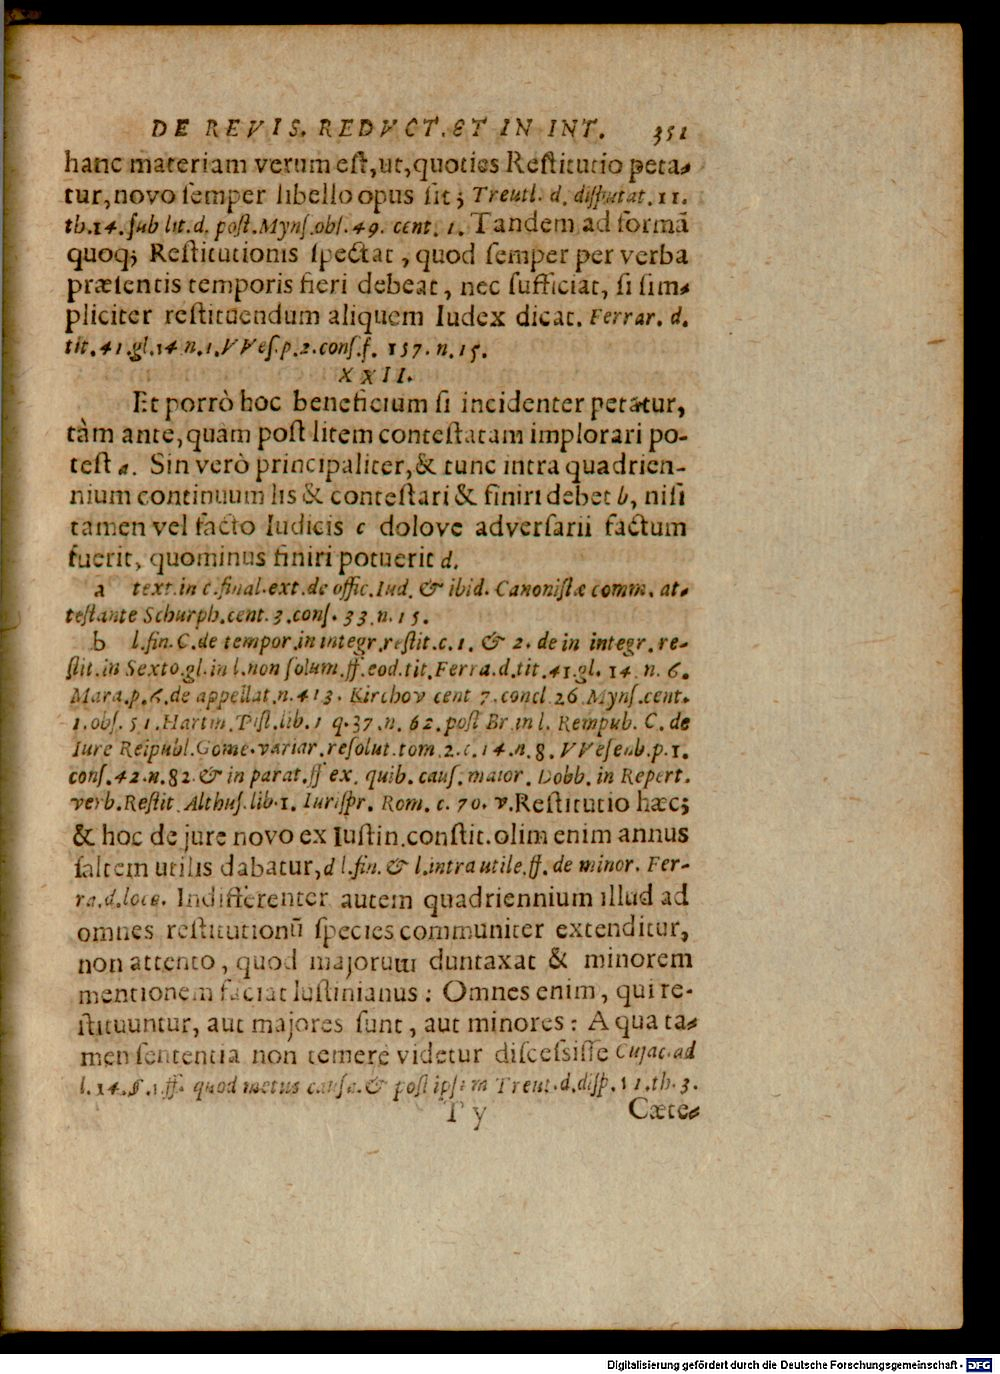 DE REVIS. REDVCT. ET IN INT. 351
hanc materiam verum eſt, ut, quoties Reſtitutio peta-
tur, novo ſemper libello opus ſit; Treutl. d. diſputat. 11.
th. 14. ſub lit. d. poſt. Mynſ. obſ. 49. cent. 1. Tandem ad formā
quoq; Reſtitutionis ſpectat, quod ſemper per verba
præſentis temporis fieri debeat, nec ſufficiat, ſi ſim-
pliciter reſtituendum aliquem Iudex dicat. Ferrar. d.
tit. 41. gl. 14 n. 1. VVeſ. p. 2. conſ. f. 157. n. 15.
XXII.
Et porrò hoc beneficium ſi incidenter petatur,
tàm ante, quàm poſt litem conteſtatam implorari po-
teſt a. Sin verò principaliter, & tunc intra quadrien-
nium continuum lis & conteſtari & finiri debet b, niſi
tamen vel facto Iudicis c dolove adverſarii factum
fuerit, quominus finiri potuerit d.
a text. in c. final. ext. de offic. Iud. & ibid. Canoniſtæ comm. at-
teſtante Schurph. cent. 3. conſ. 33. n. 15.
b l. fin. C. de tempor. in integr. reſtit. c. 1. & 2. de in integr. re-
ſtit. in Sexto. gl. in l. non ſolum. ff. eod. tit. Ferra. d. tit. 41. gl. 14. n. 6.
Mara. p. 6. de appellat. n. 413. Kirchov cent 7. concl. 26 Mynſ. cent.
1. obſ. 51. Hartm. Piſt. lib. 1 q. 37. n. 62. poſt Br. in l. Rempub. C. de
Iure Reipubl. Gome. variar. reſolut. tom. 2. c. 14. n. 8. VVeſenb. p. 1.
conſ. 42. n. 82. & in parat. ff ex. quib. cauſ. maior. Dobb. in Repert.
verb. Reſtit. Althuſ. lib. 1. Iuriſpr. Rom. c. 70. v. Reſtitutio hæc;
& hoc de jure novo ex Iuſtin. conſtit. olim enim annus
ſaltem utilis dabatur, d l. fin. & l. intra utile. ff. de minor. Fer-
ra. d. loco. Indifferenter autem quadriennium illud ad
omnes reſtitutionū ſpecies communiter extenditur,
non attento, quod majorum duntaxat & minorem
mentionem faciat Iuſtinianus: Omnes enim, qui re-
ſtituuntur, aut majores ſunt, aut minores: A qua ta-
men ſententia non temerè videtur diſceſſiſſe Cujac. ad
l. 14. §. 1. ff. quod metus cauſa. & poſt ipſum Treut. d. diſp. 11. th. 3.
Y y Cæte-
Digitalisierung gefördert durch die Deutsche Forschungsgemeinschaft - DFG